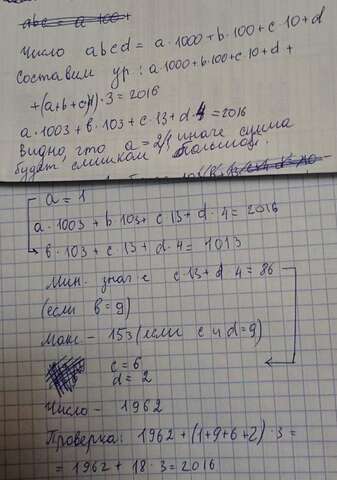 Число abcd = a·1000+b·100+c·10+d
Составим ур: a·1000+b·100+c·10+d+
+(a+b+c+d)·3=2016
a·1003+b·103+c·13+d·4=2016
Видно, что a=2/1 иначе сумма
будет слишком большой.
a=1
a·1003+b·103+c·13+d·4=2016
b·103+c·13+d·4=1013
Мин. знач-е c·13+d·4=86
(если b=9)
Макс- 153 (если c и d=9)
c=6
d=2
Число- 1962
Проверка: 1962+(1+9+6+2)·3=
=1962+18·3=2016